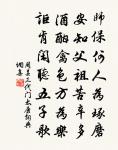 師保何人為琢磨
安知父祖苦辛多
酒酣禽色方為樂
詎肯閑聽五子歌
周曇三代門太康